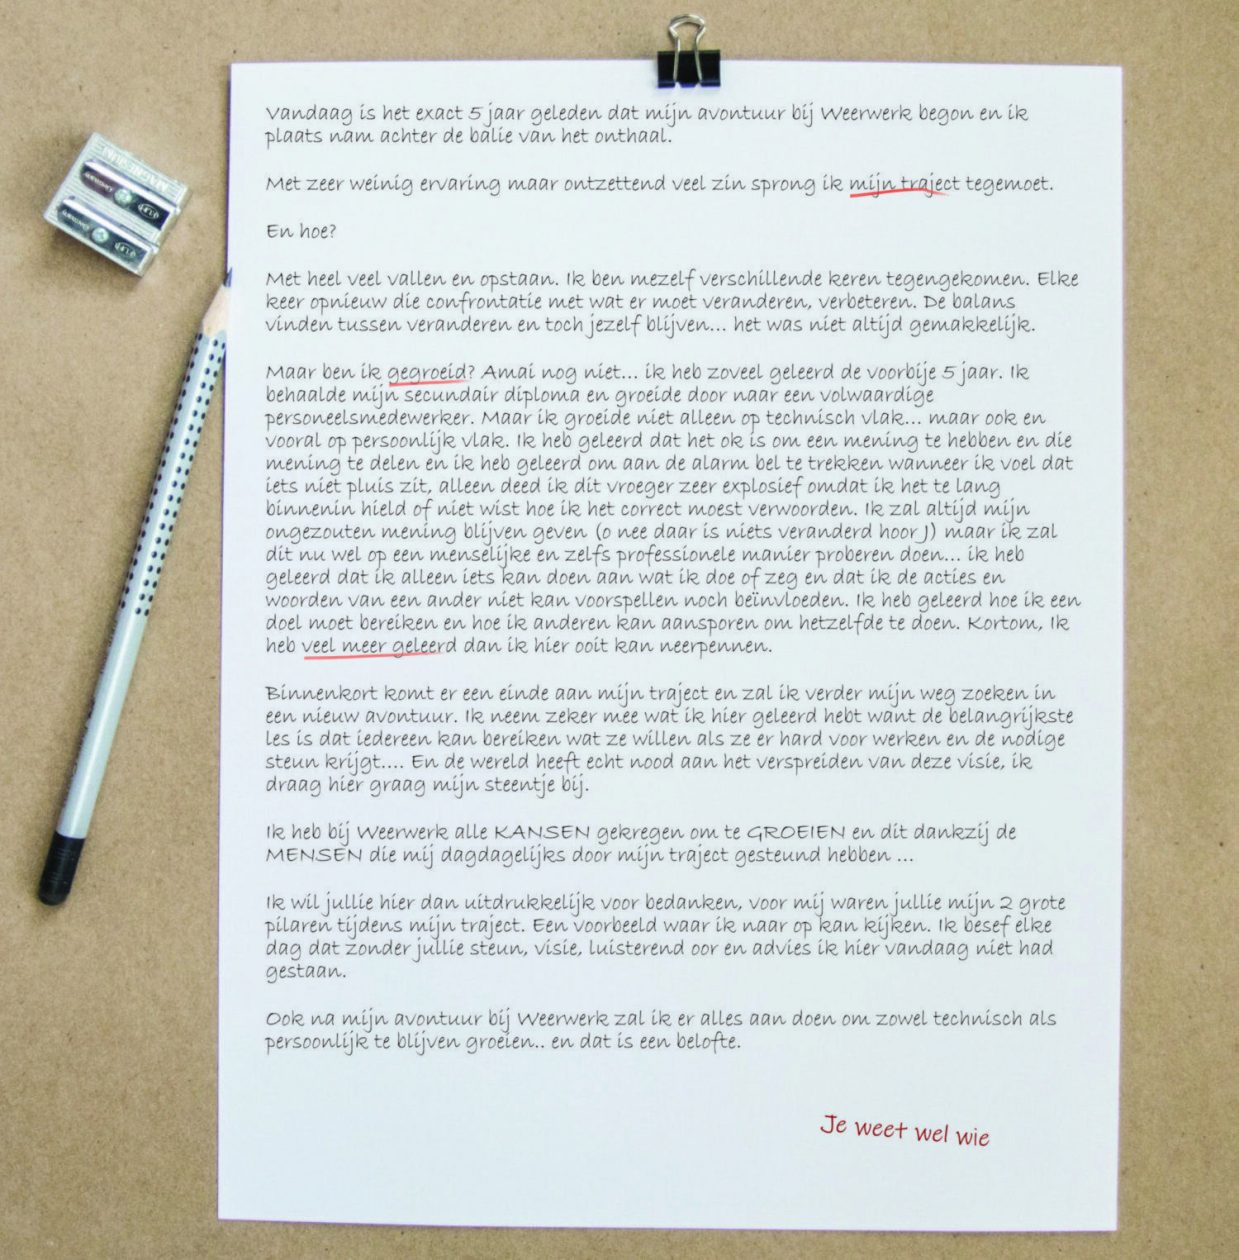 Vandaag is het exact 5 jaar geleden dat mijn avontuur bij Weerwerk begon en ik
plaats nam achter de balie van het onthaal.
Met zeer weinig ervaring maar ontzettend veel zin sprong ik mijn traject tegemoet.
En hoe?
Met heel veel vallen en opstaan. Ik ben mezelf verschillende keren tegengekomen. Elke
keer opnieuw die confrontatie met wat er moet veranderen, verbeteren. De balans
vinden tussen veranderen en toch jezelf blijven... het was niet altijd gemakkelijk.
Maar ben ik gegroeid? Amai nog niet... ik heb zoveel geleerd de voorbije 5 jaar. Ik
behaalde mijn secundair diploma en groeide door naar een volwaardige
personeelsmedewerker. Maar ik groeide niet alleen op technisch vlak... maar ook en
vooral op persoonlijk vlak. Ik heb geleerd dat het ok is om een mening te hebben en die
mening te delen en ik heb geleerd om aan de alarm bel te trekken wanneer ik voel dat
iets niet pluis zit, alleen deed ik dit vroeger zeer explosief omdat ik het te lang
binnenin hield of niet wist hoe ik het correct moest verwoorden. Ik zal altijd mijn
ongezouten mening blijven geven (o nee daar is niets veranderd hoor J) maar ik zal
dit nu wel op een menselijke en zelfs professionele manier proberen doen... ik heb
geleerd dat ik alleen iets kan doen aan wat ik doe of zeg en dat ik de acties en
woorden van een ander niet kan voorspellen noch beïnvloeden. Ik heb geleerd hoe ik een
doel moet bereiken en hoe ik anderen kan aansporen om hetzelfde te doen. Kortom, Ik
heb veel meer geleerd dan ik hier ooit kan neerpennen.
Binnenkort komt er een einde aan mijn traject en zal ik verder mijn weg zoeken in
een nieuw avontuur. Ik neem zeker mee wat ik hier geleerd hebt want de belangrijkste
les is dat iedereen kan bereiken wat ze willen als ze er hard voor werken en de nodige
steun krijgt.... En de wereld heeft echt nood aan het verspreiden van deze visie, ik
draag hier graag mijn steentje bij.
Ik heb bij Weerwerk alle KANSEN gekregen om te GROEIEN en dit dankzij de
MENSEN die mij dagdagelijks door mijn traject gesteund hebben ...
Ik wil jullie hier dan uitdrukkelijk voor bedanken, voor mij waren jullie mijn 2 grote
pilaren tijdens mijn traject. Een voorbeeld waar ik naar op kan kijken. Ik besef elke
dag dat zonder jullie steun, visie, luisterend oor en advies ik hier vandaag niet had
gestaan.
Ook na mijn avontuur bij Weerwerk zal ik er alles aan doen om zowel technisch als
persoonlijk te blijven groeien.. en dat is een belofte.
Je weet wel wie